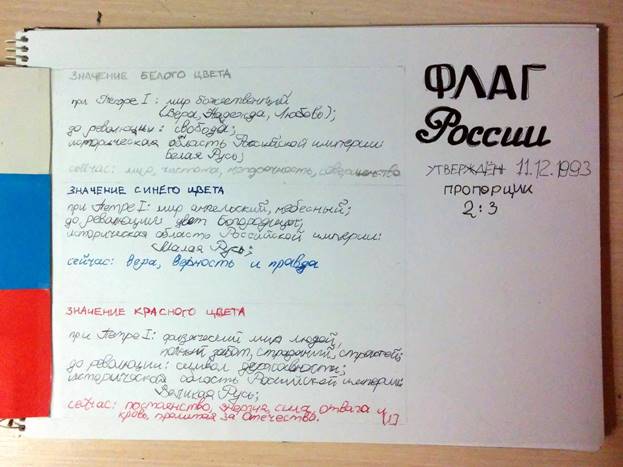 ЗНАЧЕНИЕ БЕЛОГО ЦВЕТА
при Петре I: мир божественный
(Вера, Надежда, Любовь);
до революции: свобода;
историческая область Российской империи:
Белая Русь;
сейчас: мир, чистота, непорочность, совершенство
ЗНАЧЕНИЕ СИНЕГО ЦВЕТА
при Петре I: мир ангельский, небесный;
до революции: цвет Богородицы;
историческая область Российской империи:
Малая Русь;
сейчас: вера, верность и правда
ЗНАЧЕНИЕ КРАСНОГО ЦВЕТА
при Петре I: физический мир людей,
полный забот, страданий, страстей;
до революции: символ державности;
историческая область Российской империи:
Великая Русь;
сейчас: постоянство, энергия, сила, отвага и
кровь, пролитая за Отечество.
ФЛАГ
России
УТВЕРЖДЁН 11.12.1993
ПРОПОРЦИИ
2:3